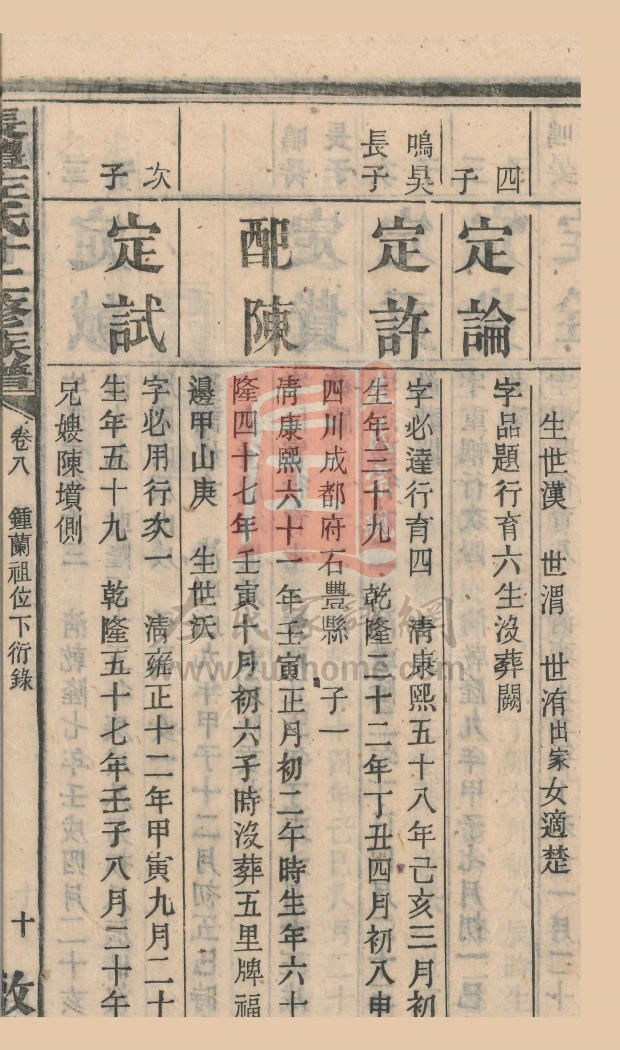 生世漢 世渭 世洧出家女適楚
四子
定論
字品題行育六生沒葬闕
鳴昊長子
定許
字必達行育四 清康熙五十八年己亥三月初
生年三十九 乾隆二十二年丁丑四月初八申
四川成都府石豐縣 子一
配陳
清康熙六十一年壬寅正月初二午時生年六十
隆四十七年壬寅十月初六子時沒葬五里牌福
邊甲山庚 生世沃
次子
定試
字必用行次一 清雍正十二年甲寅九月二十
生年五十九 乾隆五十七年壬子八月二十午
兄嫂陳墳側
氏十二修族譜
卷八 鍾蘭祖位下衍錄
十
www.zuxhome.com